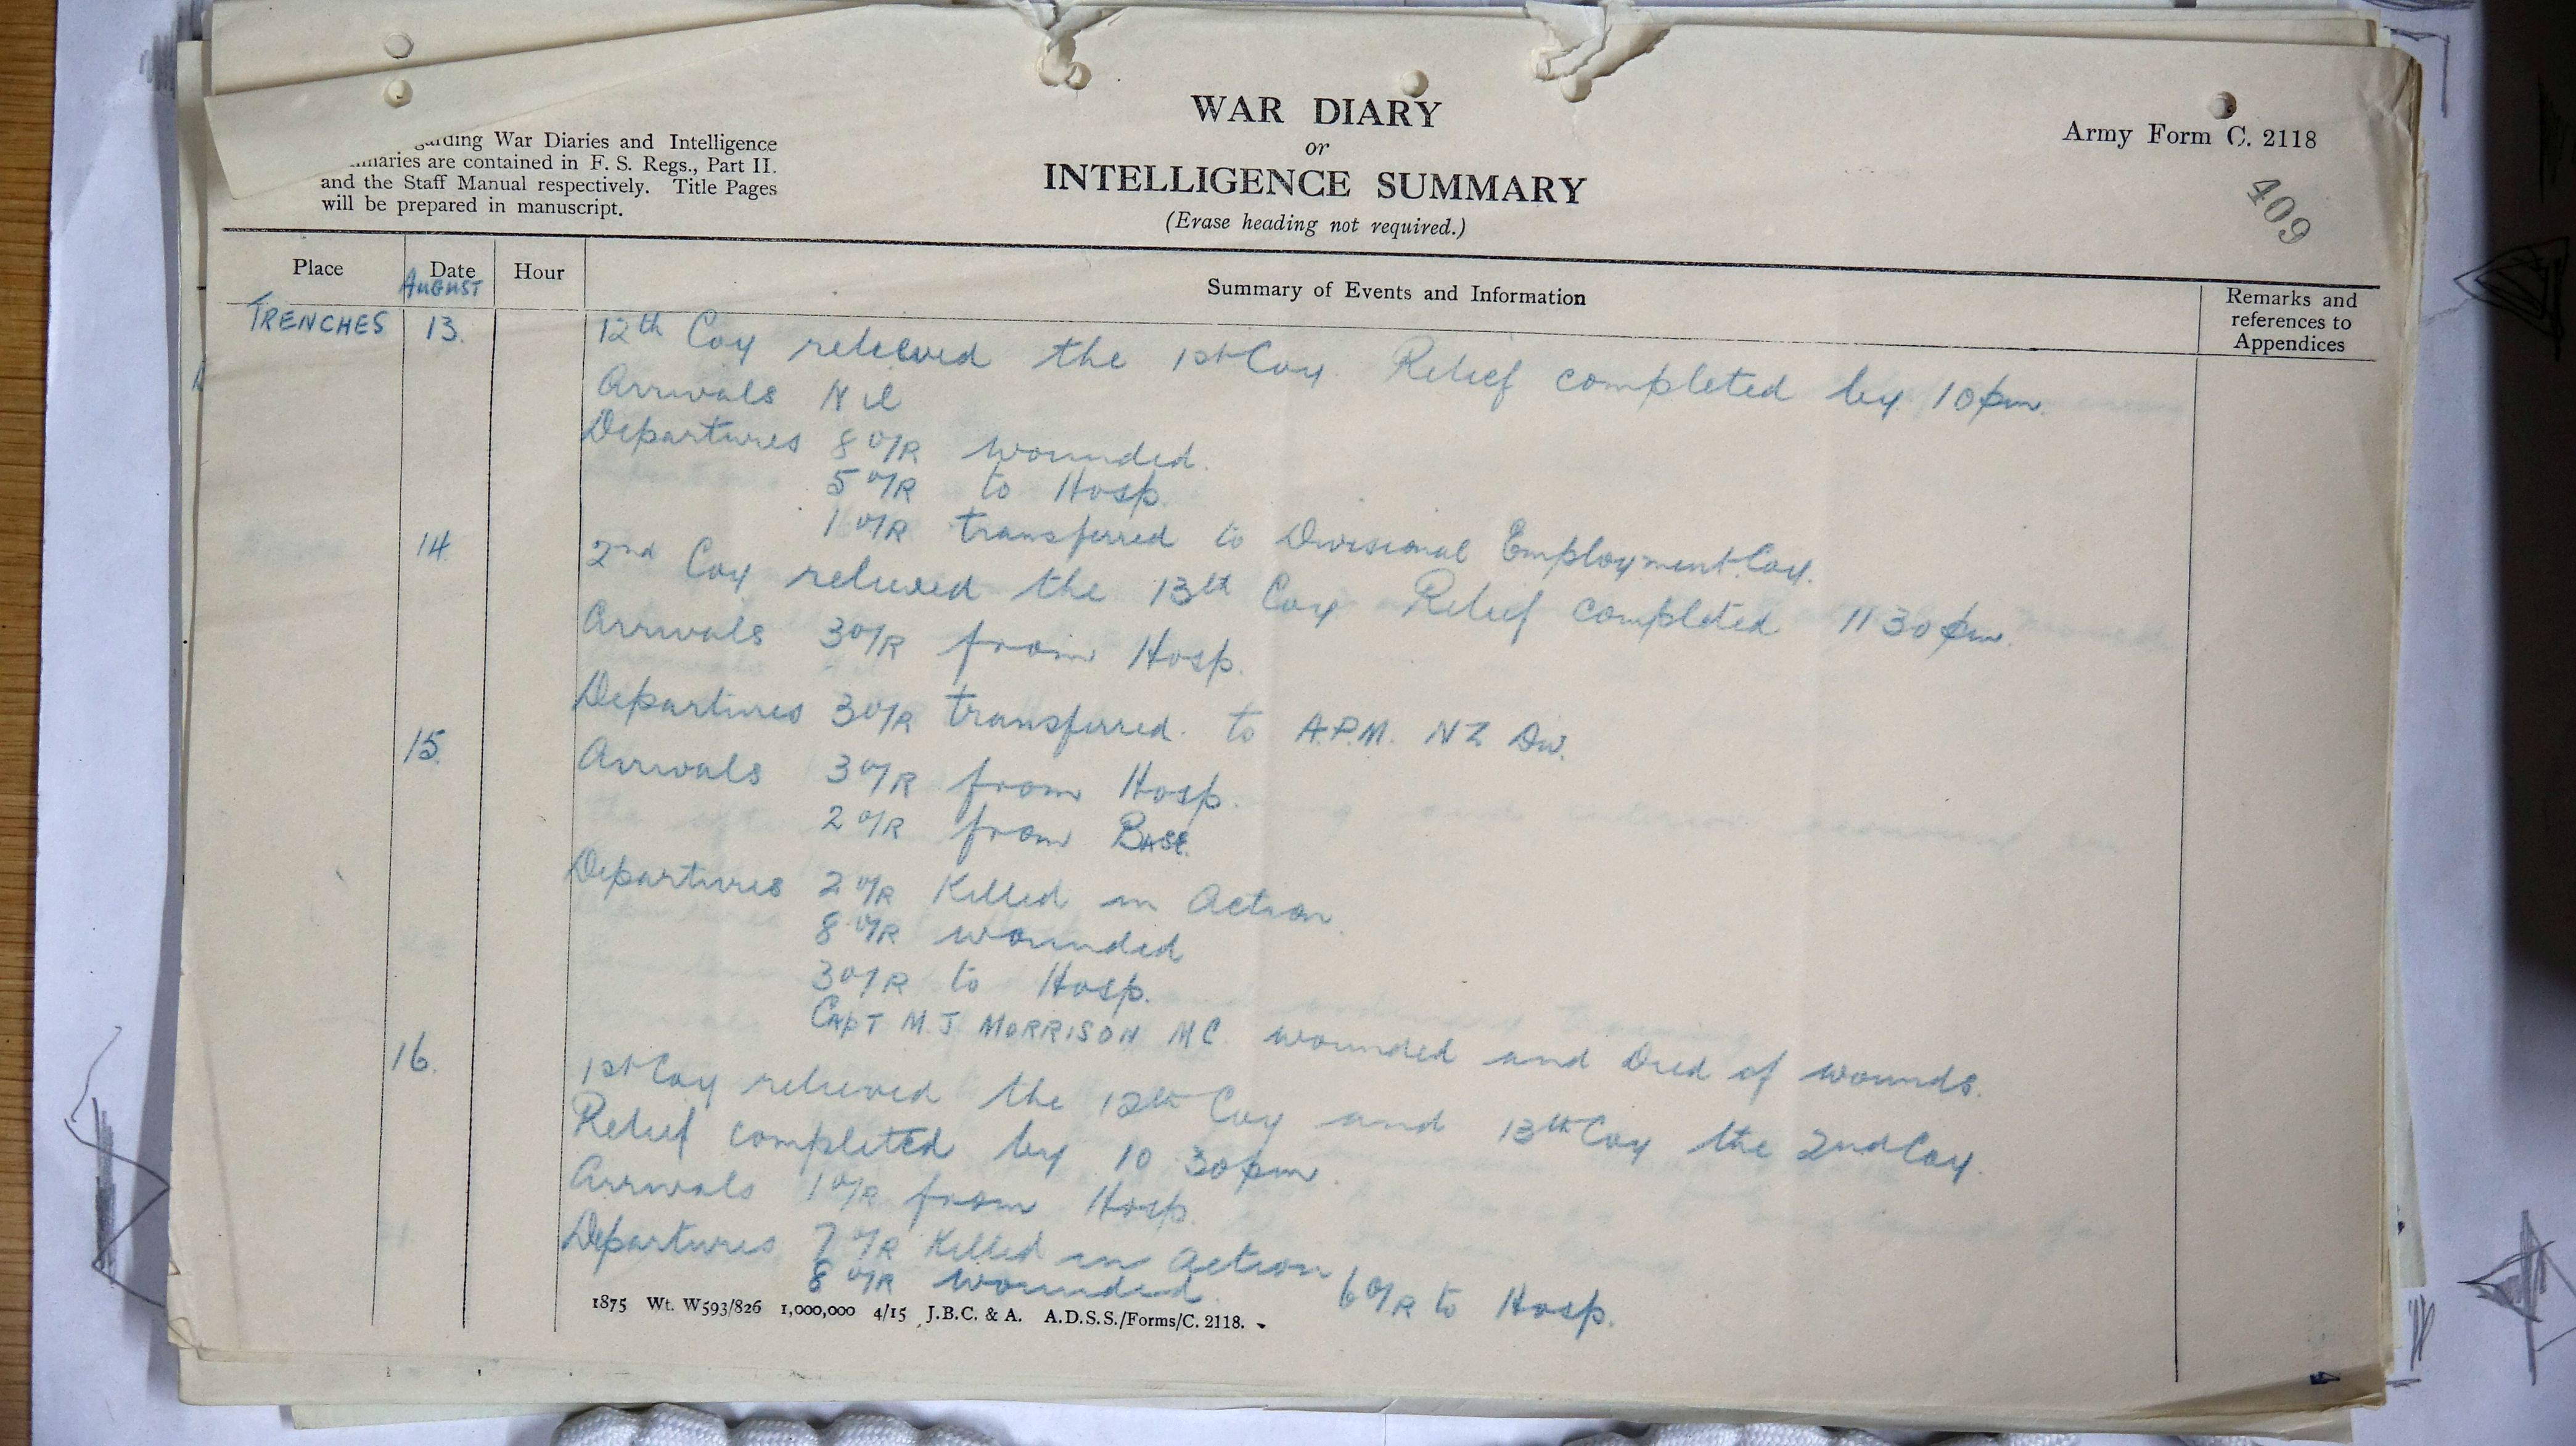 WAR DIARY
or
INTELLIGENCE SUMMARY
(Erase heading not required.)
Army Form C. 2118
409
War Diaries and Intelligence
are contained in F. S. Regs., Part II.
and the Staff Manual respectively. Title Pages
will be prepared in manuscript.
Place Date Hour Summary of Events and Information Remarks and references to Appendices
AUGUST
TRENCHES 13. 12th Coy relieved the 1st Coy. Relief completed by 10 pm.
Arrivals Nil
Departures 8 O/R wounded.
5 O/R to Hosp.
1 O/R transferred to Divisional Employment Coy.
14 2nd Coy relieved the 13th Coy Relief completed 11 30 pm.
Arrivals 3 O/R from Hosp.
Departures 3 O/R transferred. to A.P.M. NZ Div.
15. Arrivals 3 O/R from Hosp.
2 O/R from BASE.
Departures 2 O/R Killed in Action.
8 O/R wounded
3 O/R to Hosp.
CAPT M.J. MORRISON MC. wounded and Died of wounds.
16. 1st Coy relieved the 12th Coy and 13th Coy the 2nd Coy.
Relief completed by 10 30 pm.
Arrivals 1 O/R from Hosp.
Departures 7 O/R Killed in Action
8 O/R wounded. 6 O/R to Hosp.
1875 Wt. W593/826 1,000,000 4/15 J.B.C. & A. A.D.S.S./Forms/C. 2118.